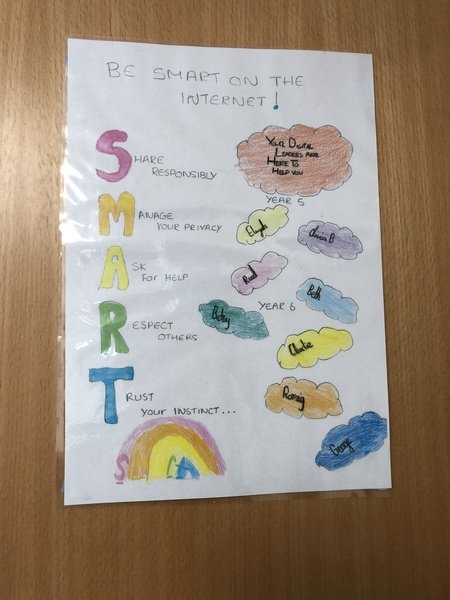 BE SMART ON THE
INTERNET!
SHARE
RESPONSIBLY
MANAGE
YOUR PRIVACY
ASK
FOR HELP
RESPECT
OTHERS
TRUST
YOUR INSTINCT...
YOUR DIGITAL
LEADERS ARE
HERE TO
HELP YOU
YEAR 5
B
YEAR 6
Beth
Betsy
Charlie
George